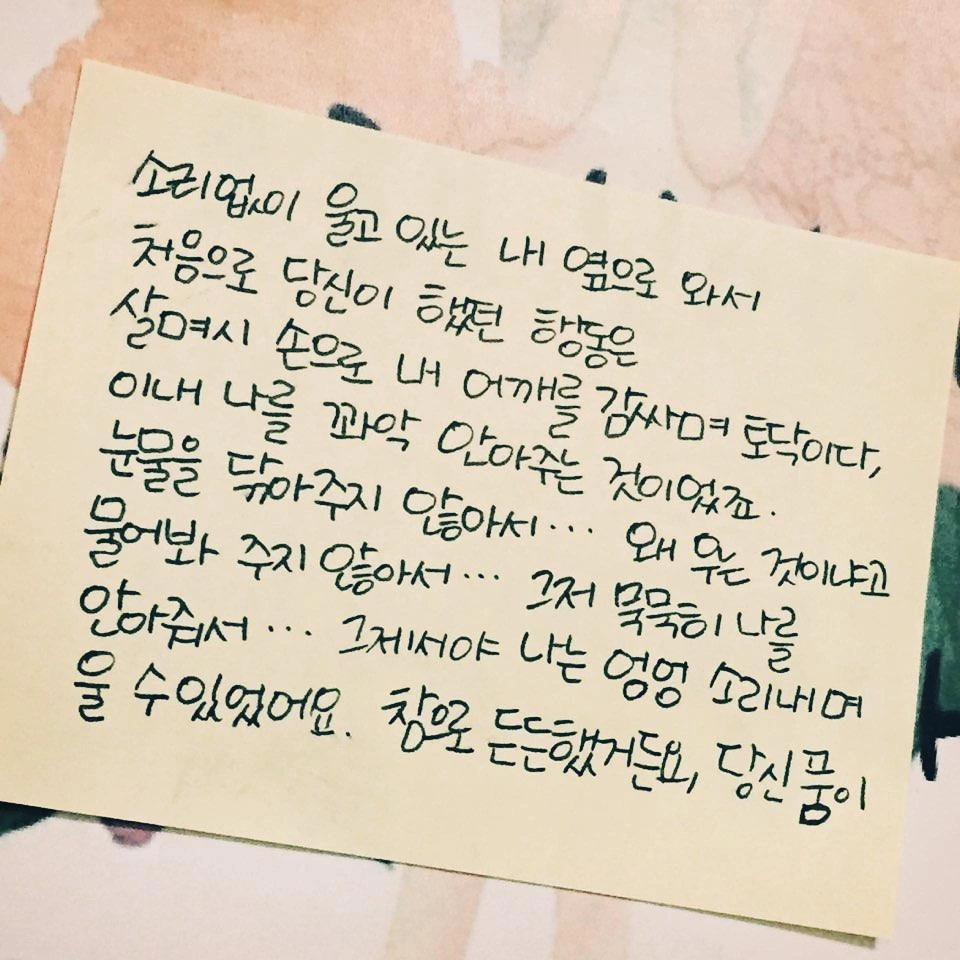 소리없이 울고 있는 내 옆으로 와서
처음으로 당신이 했던 행동은
살며시 손으로 내 어깨를 감싸며 토닥이다,
이내 나를 꽈악 안아주는 것이었죠.
눈물을 닦아주지 않아서... 왜 우는 것이냐고
물어봐 주지 않아서... 그저 묵묵히 나를
안아줘서... 그제서야 나는 엉엉 소리내며
울 수 있었어요. 참으로 든든했거든요, 당신 품이